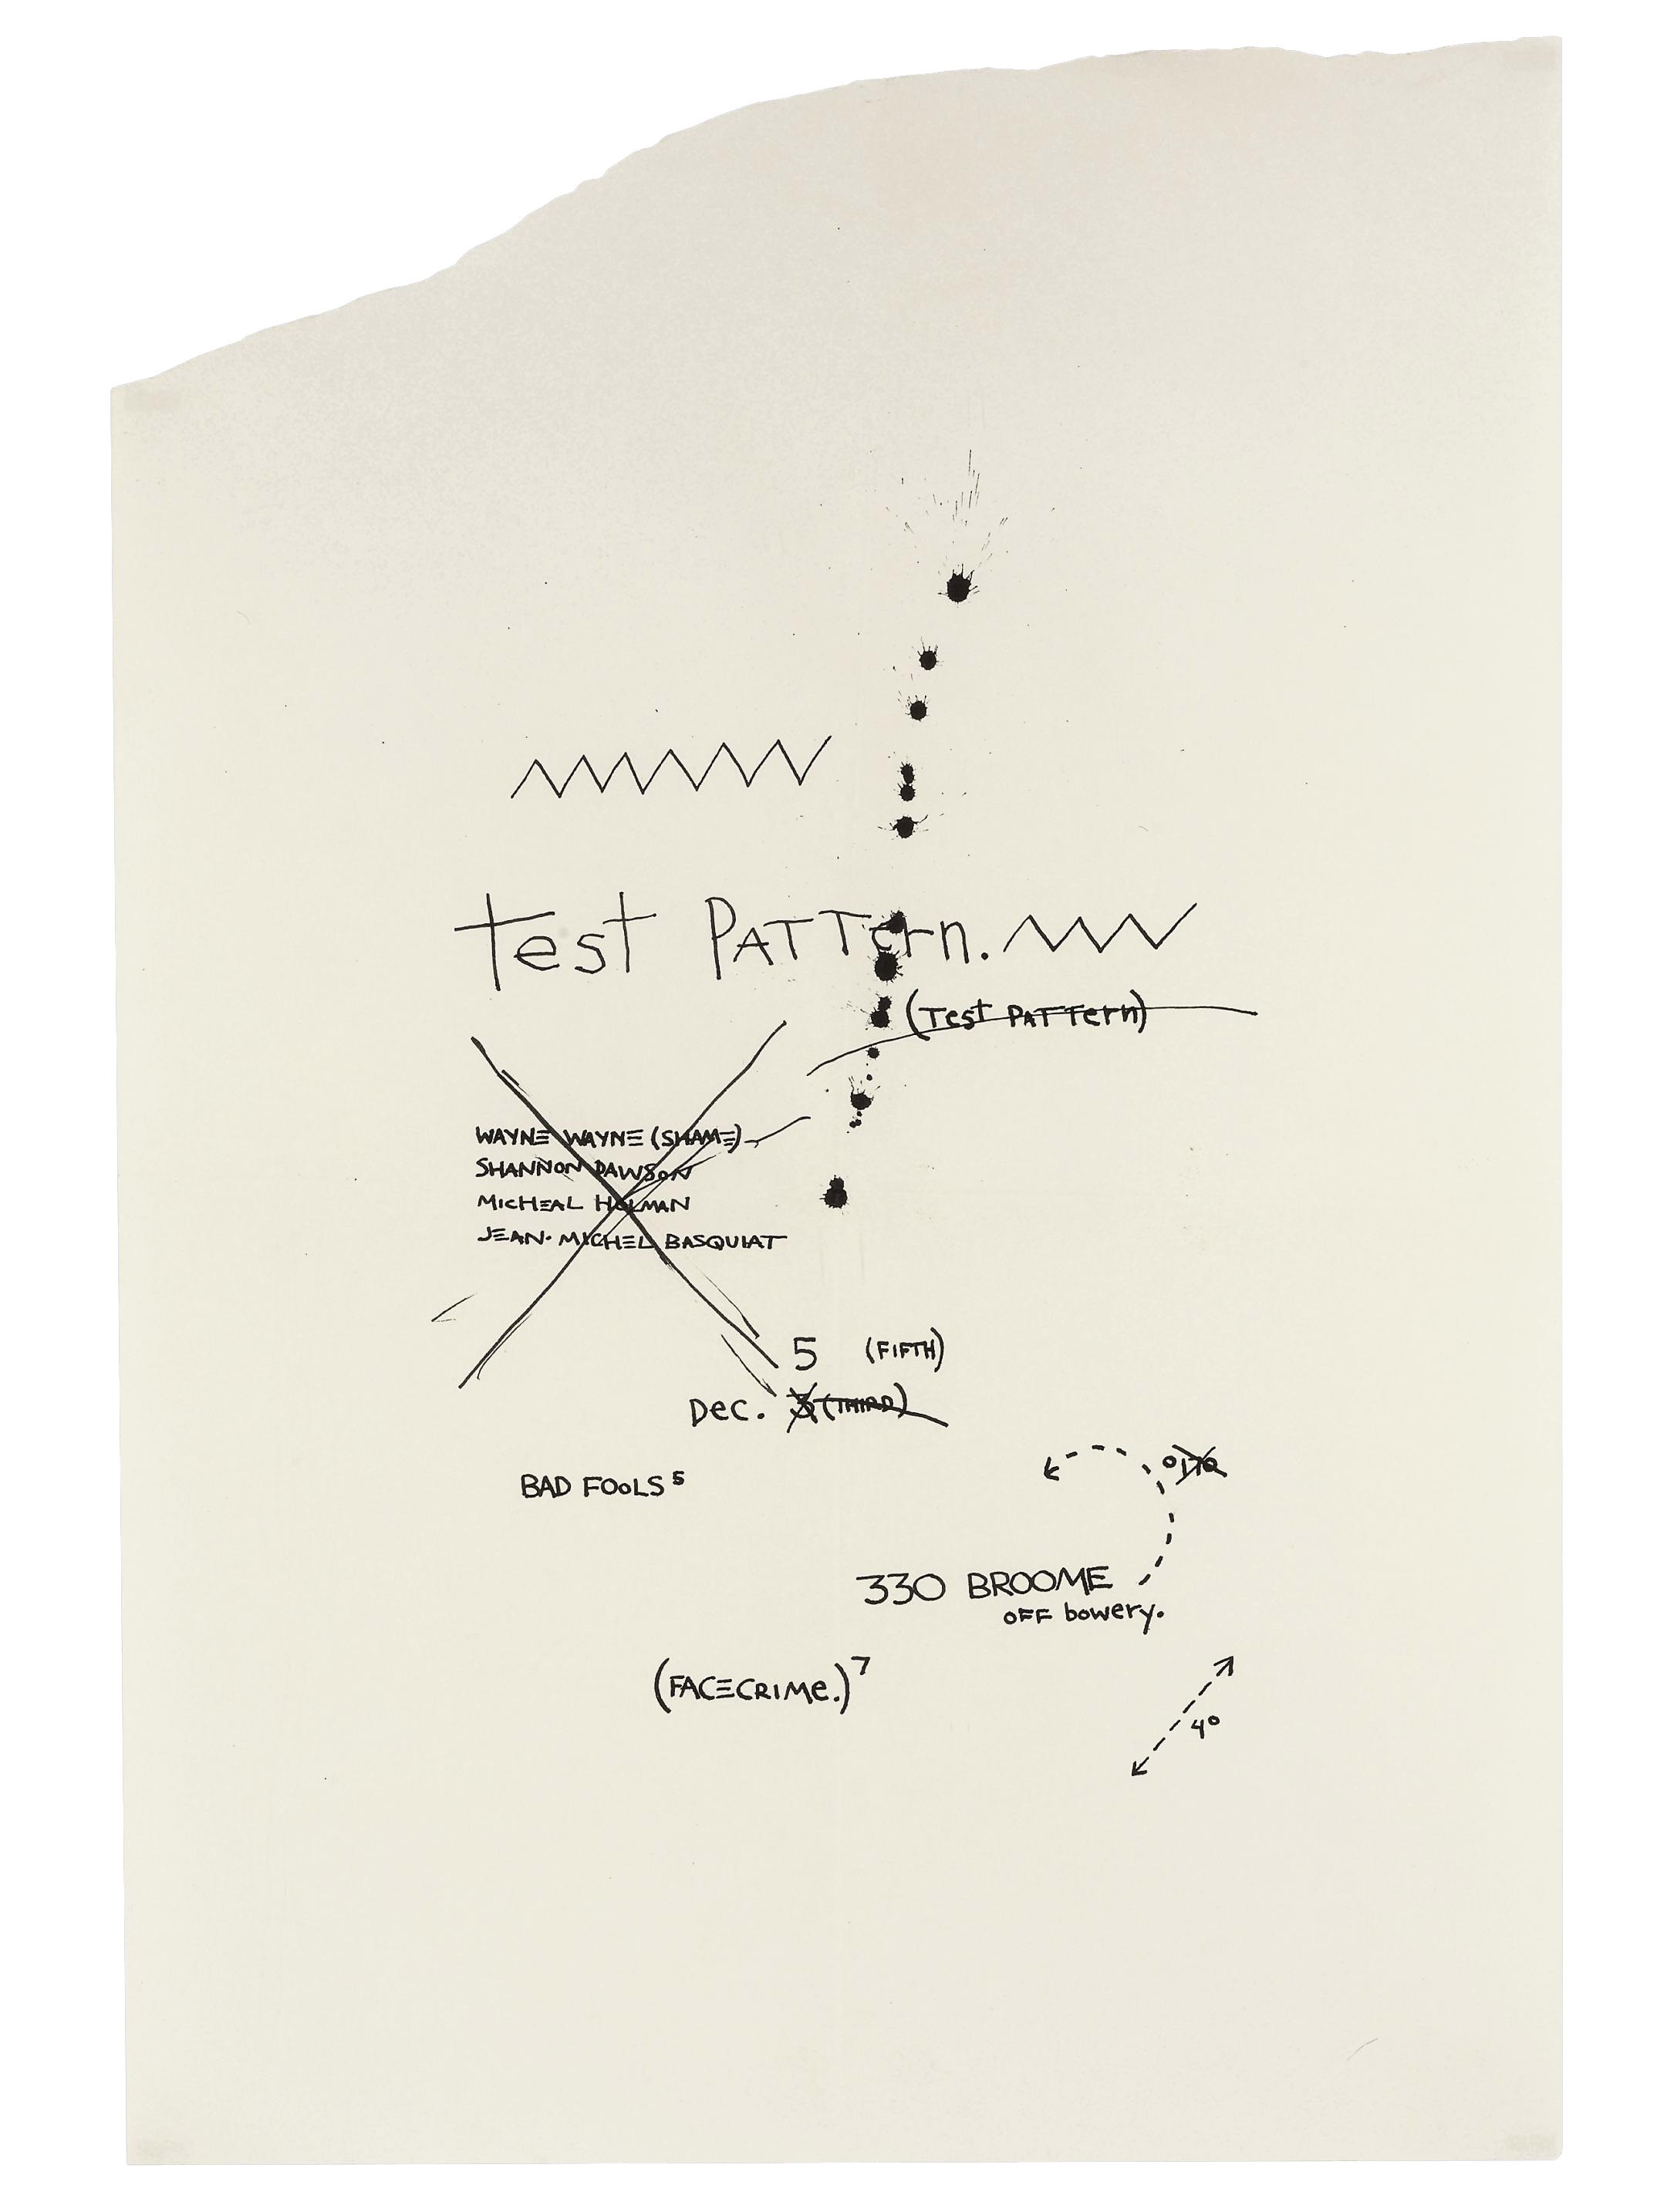 test PATTern.
(Test PATTern)
WAYNE WAYNE (SHAME)
SHANNON DAWSON
MICHEAL HOLMAN
JEAN-MICHEL BASQUIAT
5 (FIFTH)
Dec. 3 (THIRD)
BAD FOOLS⁵
330 BROOME
OFF bowery.
(FACECRIMe.)⁷
4°